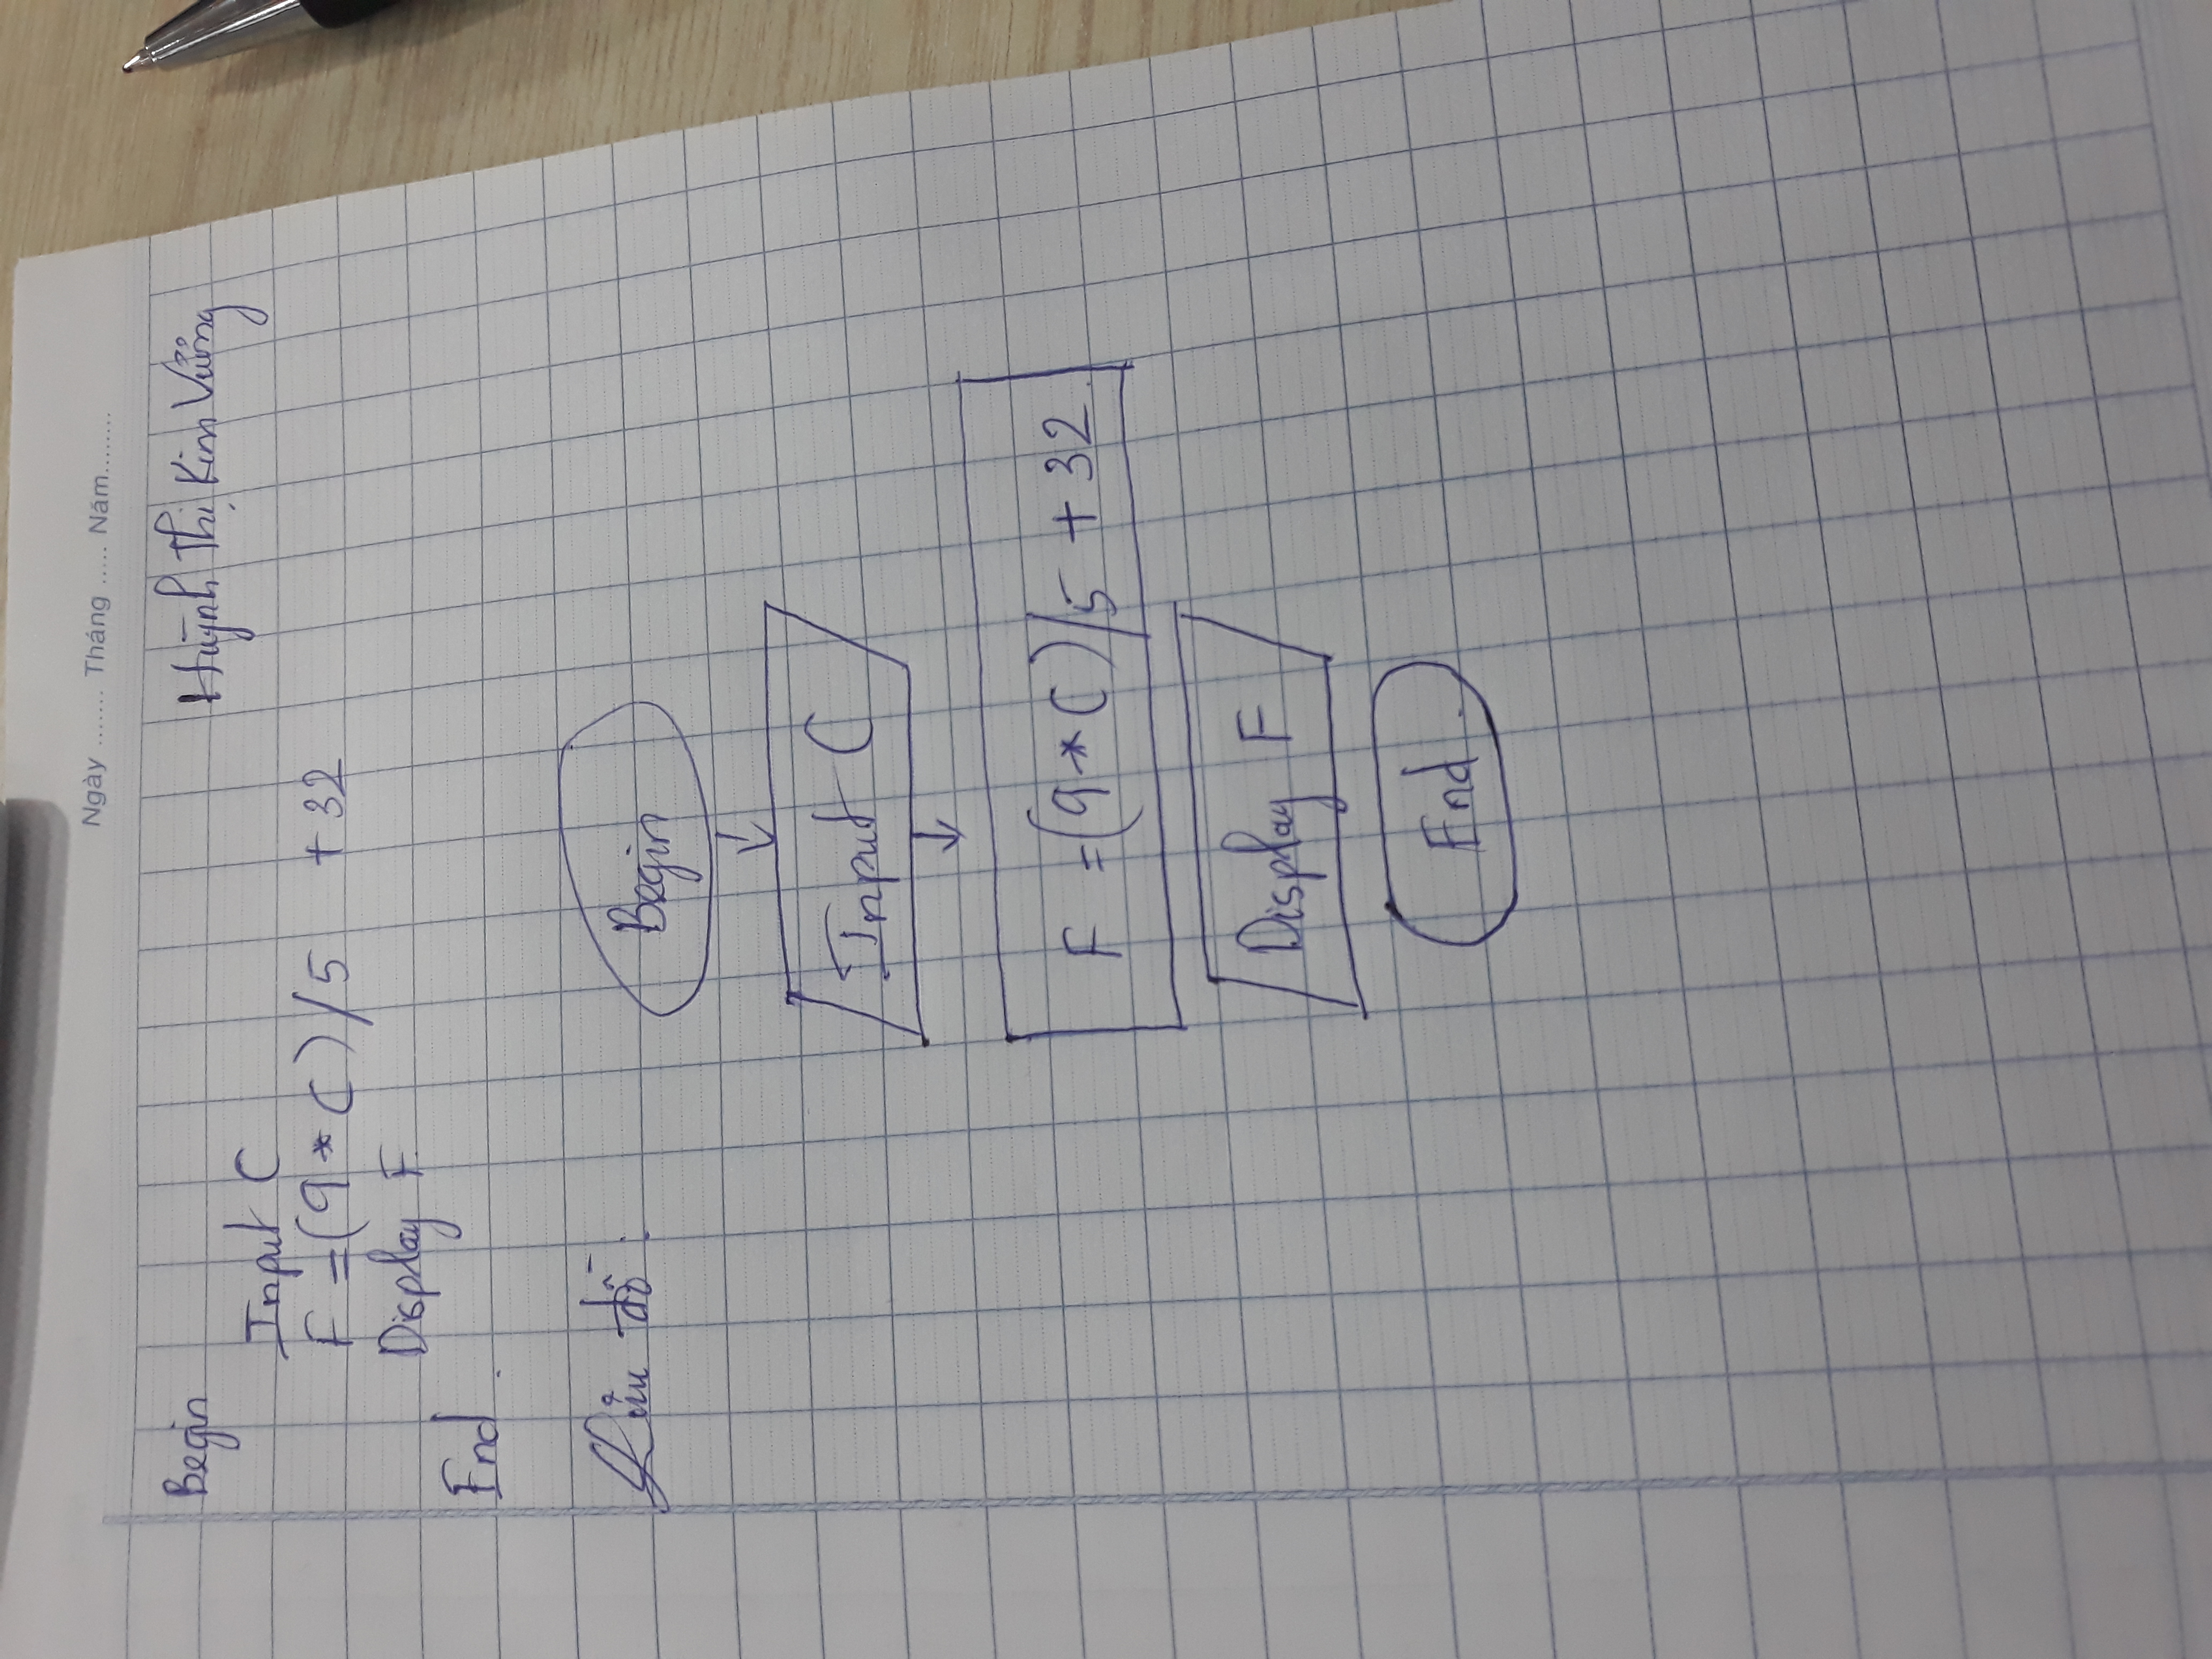 Ngày ....... Tháng ..... Năm........
Begin
Huỳnh Thị Kim Vưởng
Input C
F = (9 * C) / 5 + 32
Display F
End .
Lưu đồ :
Begin
Input C
F = (9 * C) / 5 + 32.
Display F
End .